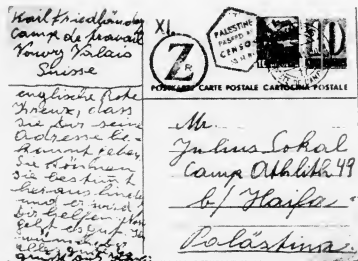 Karl Friedländer
Camp de travail
Vouvry Valais
Suisse
XI.
Z
R
PALESTINE
PASSED BY
CENSOR
10
POSTKARTE CARTE POSTALE CARTOLINA POSTALE
englische Rote
Kreuz, dass
sie dir seine
Adresse be-
kannt geben,
Sie können
sie bestimmt
heraus
und er wird
dir helfen
geht es gut
alles gut
Mr.
Julius Sokal
Camp Athlith 49
b/ Haifa
Palästina